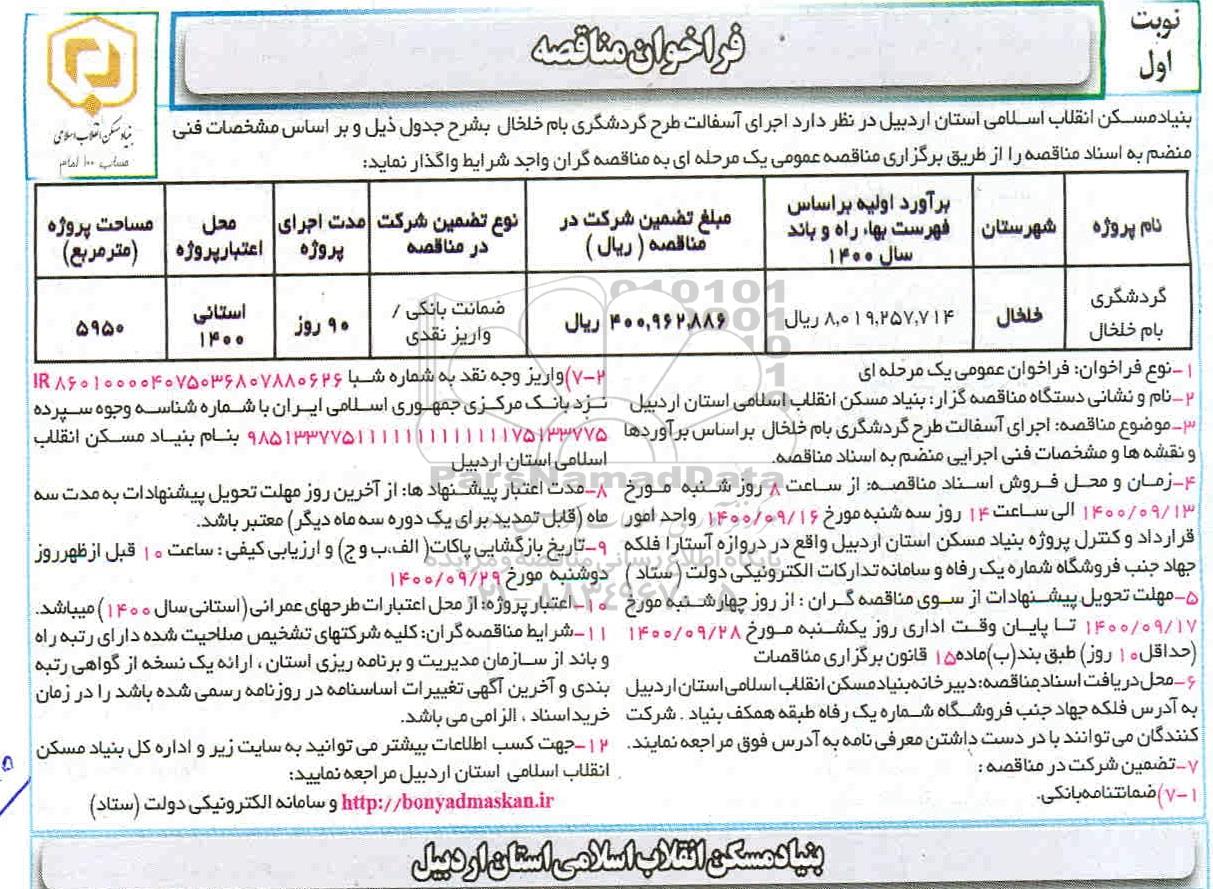 نوبت
اول
فراخوان مناقصه
بنیاد مسکن انقلاب اسلامی
حساب ۱۰۰ امام
بنیاد مسکن انقلاب اسلامی استان اردبیل در نظر دارد اجرای آسفالت طرح گردشگری بام خلخال بشرح جدول ذیل و بر اساس مشخصات فنی
منضم به اسناد مناقصه را از طریق برگزاری مناقصه عمومی یک مرحله ای به مناقصه گران واجد شرایط واگذار نماید:
نام پروژه | شهرستان | برآورد اولیه براساس فهرست بها، راه و باند سال ۱۴۰۰ | مبلغ تضمین شرکت در مناقصه ( ریال ) | نوع تضمین شرکت در مناقصه | مدت اجرای پروژه | محل اعتبارپروژه | مساحت پروژه (مترمربع)
گردشگری بام خلخال | خلخال | ۸,۰۱۹,۲۵۷,۷۱۴ ریال | ۴۰۰,۹۶۲,۸۸۶ ریال | ضمانت بانکی / واریز نقدی | ۹۰ روز | استانی ۱۴۰۰ | ۵۹۵۰
۱-نوع فراخوان: فراخوان عمومی یک مرحله ای
۲-نام و نشانی دستگاه مناقصه گزار: بنیاد مسکن انقلاب اسلامی استان اردبیل
۳-موضوع مناقصه: اجرای آسفالت طرح گردشگری بام خلخال براساس برآوردها
و نقشه ها و مشخصات فنی اجرایی منضم به اسناد مناقصه.
۴-زمان و محل فروش اسناد مناقصه: از ساعت ۸ روز شنبه مورخ
۱۴۰۰/۰۹/۱۳ الی ساعت ۱۴ روز سه شنبه مورخ ۱۴۰۰/۰۹/۱۶ واحد امور
قرارداد و کنترل پروژه بنیاد مسکن استان اردبیل واقع در دروازه آستارا فلکه
جهاد جنب فروشگاه شماره یک رفاه و سامانه تدارکات الکترونیکی دولت ( ستاد )
۵-مهلت تحویل پیشنهادات از سوی مناقصه گران : از روز چهارشنبه مورخ
۱۴۰۰/۰۹/۱۷ تا پایان وقت اداری روز یکشنبه مورخ ۱۴۰۰/۰۹/۲۸
(حداقل۱۰ روز) طبق بند(ب)ماده۱۵ قانون برگزاری مناقصات
۶-محل دریافت اسناد مناقصه: دبیرخانه بنیاد مسکن انقلاب اسلامی استان اردبیل
به آدرس فلکه جهاد جنب فروشگاه شماره یک رفاه طبقه همکف بنیاد . شرکت
کنندگان می توانند با در دست داشتن معرفی نامه به آدرس فوق مراجعه نمایند.
۷-تضمین شرکت در مناقصه :
۷-۱)ضمانتنامه بانکی.
۷-۲)واریز وجه نقد به شماره شبا IR ۸۶۰۱۰۰۰۰۴۰۷۵۰۳۶۸۰۷۸۸۰۶۲۶
نزد بانک مرکزی جمهوری اسلامی ایران با شماره شناسه وجوه سپرده
بنام بنیاد مسکن انقلاب
اسلامی استان اردبیل
۸-مدت اعتبار پیشنهاد ها: از آخرین روز مهلت تحویل پیشنهادات به مدت سه
ماه (قابل تمدید برای یک دوره سه ماه دیگر) معتبر باشد.
۹-تاریخ بازگشایی پاکات( الف،ب و ج) و ارزیابی کیفی : ساعت ۱۰ قبل ازظهرروز
دوشنبه مورخ ۱۴۰۰/۰۹/۲۹
۱۰-اعتبار پروژه: از محل اعتبارات طرحهای عمرانی (استانی سال ۱۴۰۰) میباشد.
۱۱-شرایط مناقصه گران: کلیه شرکتهای تشخیص صلاحیت شده دارای رتبه راه
و باند از سازمان مدیریت و برنامه ریزی استان ، ارائه یک نسخه از گواهی رتبه
بندی و آخرین آگهی تغییرات اساسنامه در روزنامه رسمی شده باشد را در زمان
خرید اسناد ، الزامی می باشد.
۱۲-جهت کسب اطلاعات بیشتر می توانید به سایت زیر و اداره کل بنیاد مسکن
انقلاب اسلامی استان اردبیل مراجعه نمایید:
http://bonyadmaskan.ir و سامانه الکترونیکی دولت (ستاد)
بنیاد مسکن انقلاب اسلامی استان اردبیل
ParsNamadData
پایگاه اطلاع رسانی مناقصه و مزایده
۰۲۱-۸۸۳۴۹۶۷۰-۵